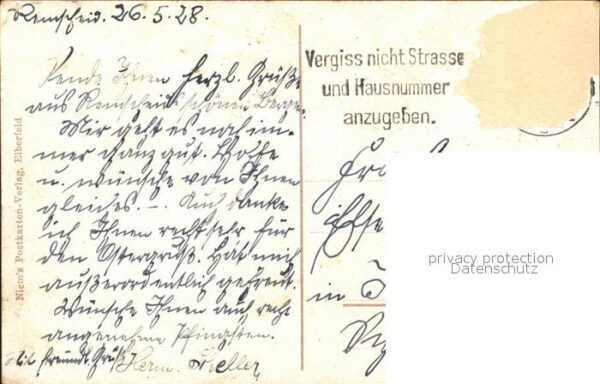 Remscheid. 26.5.28.
Sende Ihnen herzl. Grüße
aus Remscheids schönen Berge.
Mir geht es noch im-
mer ganz gut. Hoffe
u. wünsche von Ihnen
gleiches. -. Auch danke
ich Ihnen recht sehr für
den Ostergruß. Hat mich
außerordentlich gefreut.
Wünsche Ihnen auch recht
angenehme Pfingsten.
Mit freundl. Gruß Herm.
Niem's Postkarten-Verlag, Elberfeld
Vergiss nicht Strasse
und Hausnummer
anzugeben.
in
privacy protection
Datenschutz